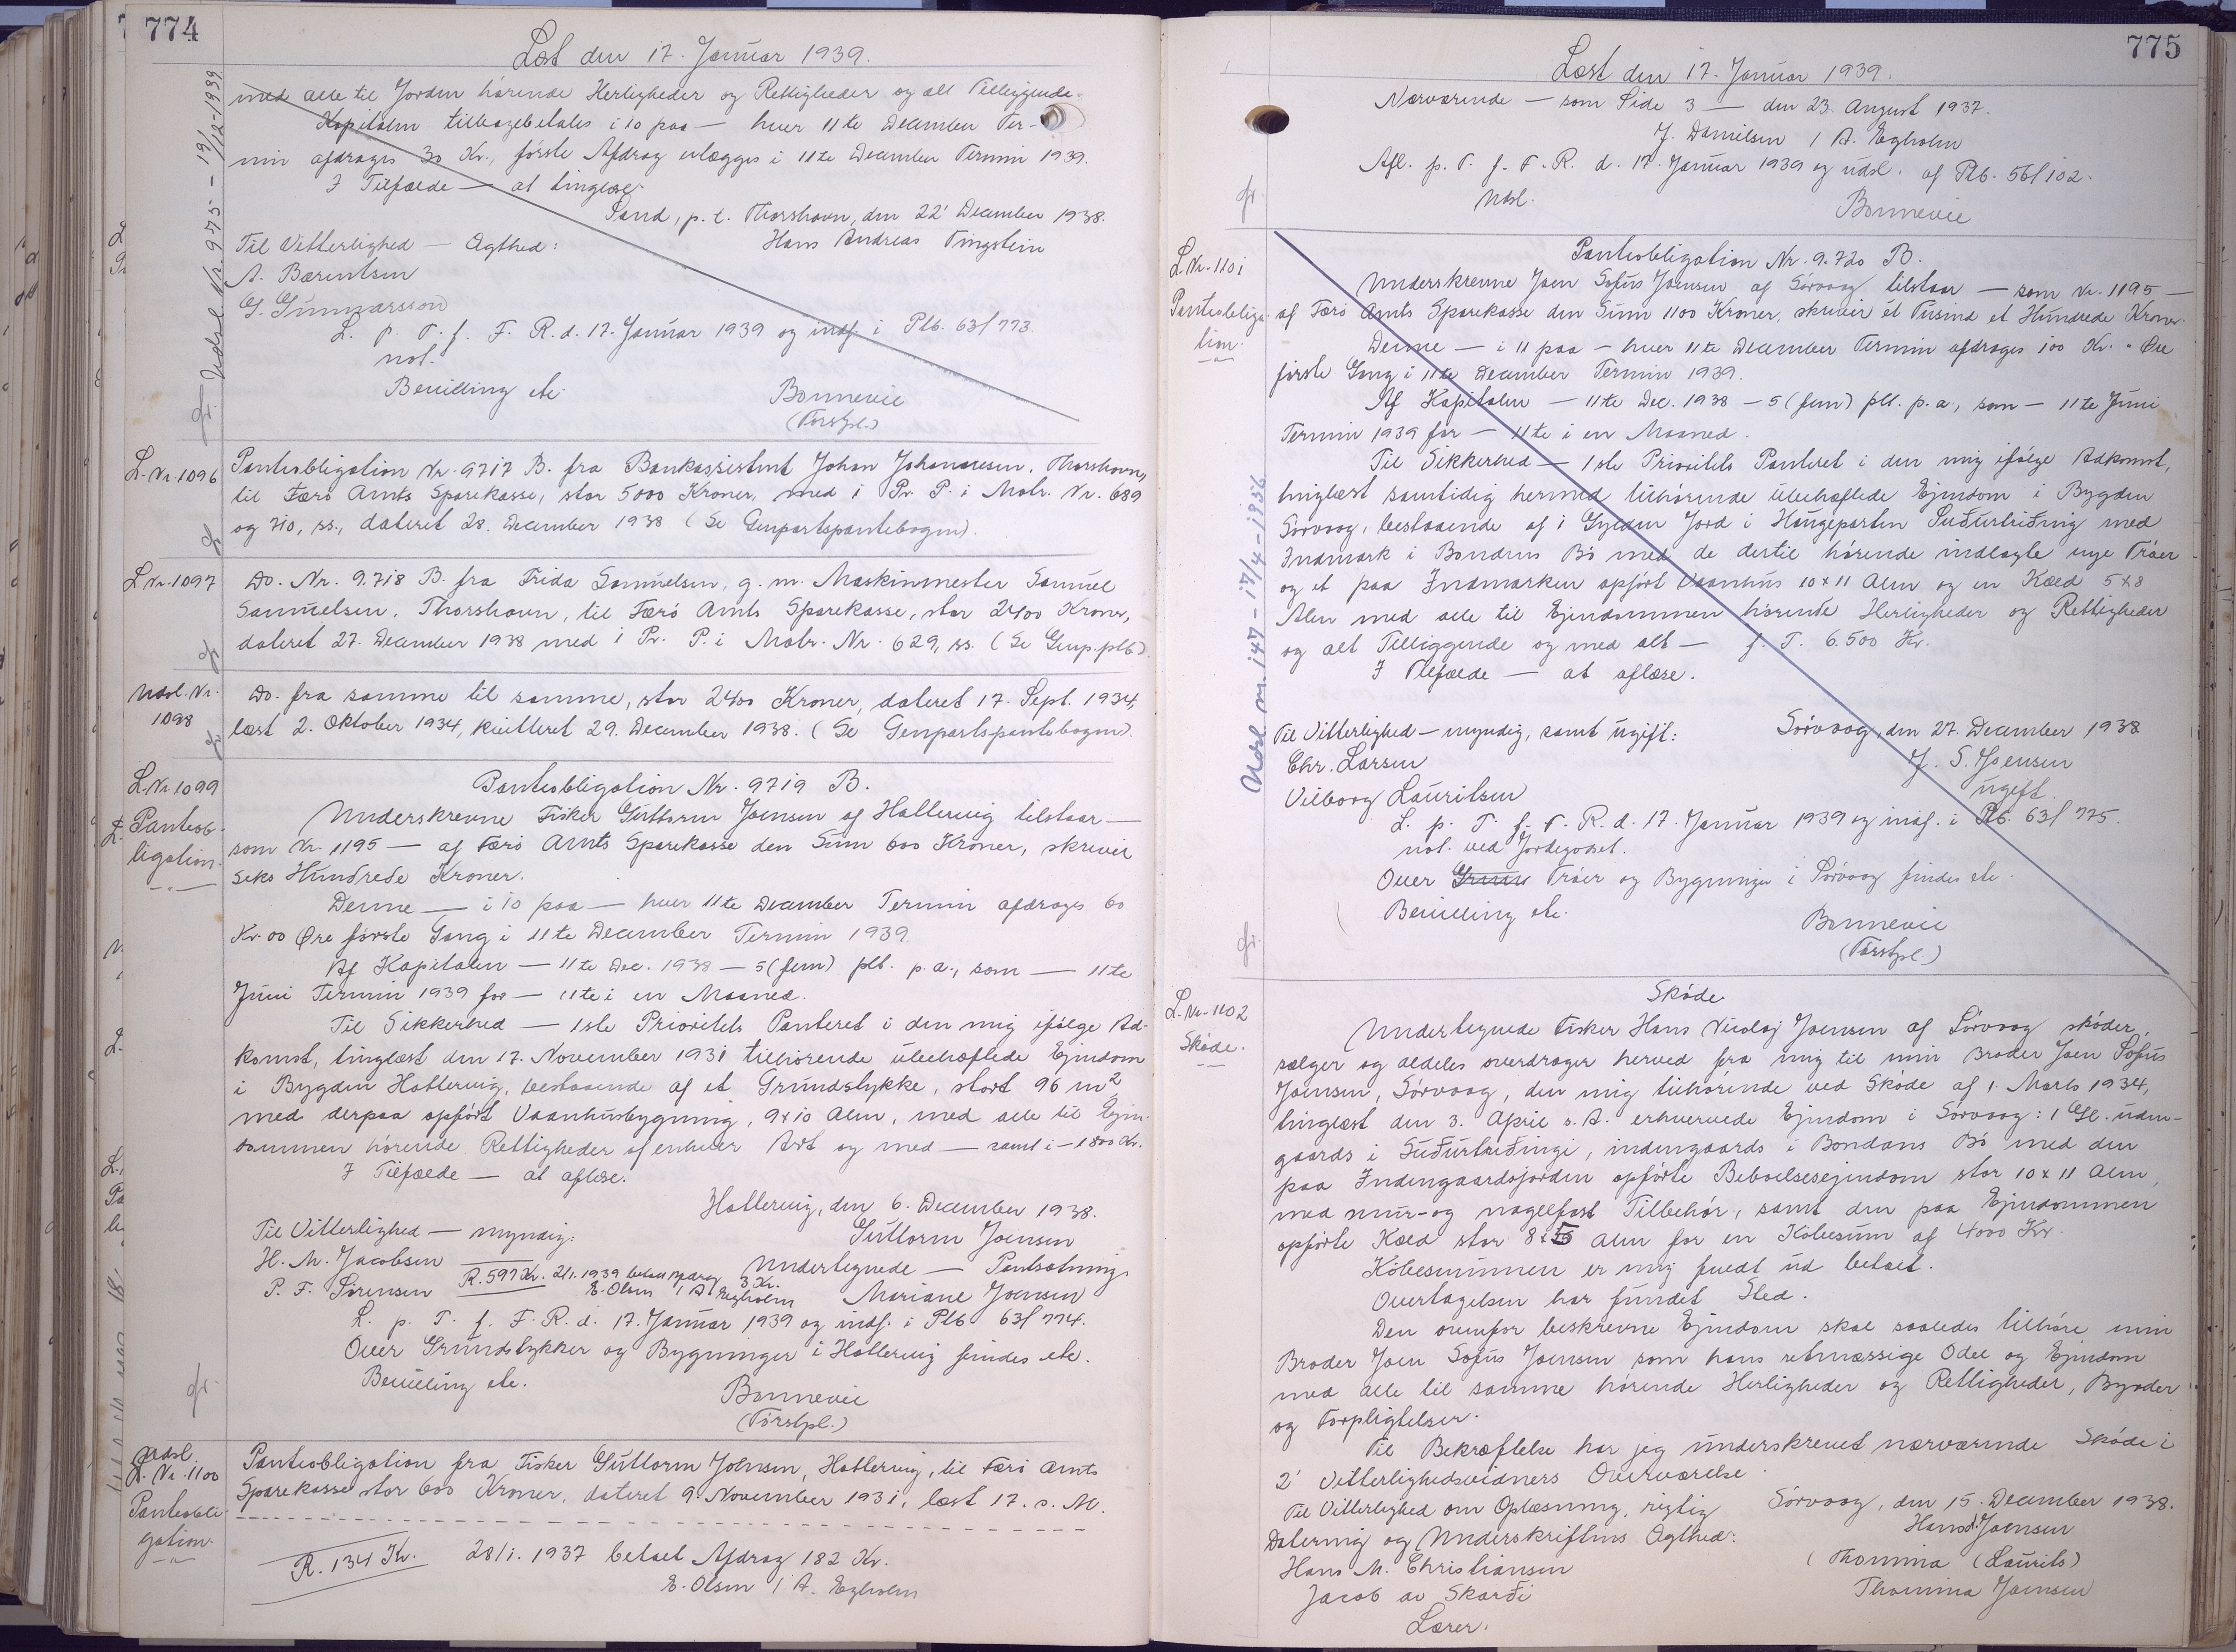 774
Læst den 17. Januar 1939.
Udsl. Nr. 975 - 19/12-1939
med alle til Jorden hørende Herligheder og Rettigheder og alt Tilliggende.
Kapitalen tilbagebetales i 10 paa — hver 11te December Ter-
min afdrages 30 Kr., første Afdrag erlægges i 11te December Termin 1939.
I Tilfælde — at tinglæse.
Sand, p. t. Thorshavn, den 22' December 1938.
Til Vitterlighed — Ægthed:
Hans Andreas Tingstein
A. Bærentsen
G. Gunnarsson
L. p. T. f. F. R. d. 17. Januar 1939 og indf. i Ptb. 63/773.
not.
Bevilling etc.
Bonnevie
(Forstpl.)
L. Nr. 1096
Panteobligation Nr. 9717 B. fra Bankassistent Johan Johannesen, Thorshavn,
til Færø Amts Sparekasse, stor 5000 Kroner, med 1 Pr. P. i Matr. Nr. 689
og 710, ss., dateret 28. December 1938 (Se Genpartspantebogen).
L. Nr. 1097
Do. Nr. 9.718 B. fra Frida Samuelsen, g. m. Maskinmester Samuel
Samuelsen, Thorshavn, til Færø Amts Sparekasse, stor 2400 Kroner,
dateret 27. December 1938 med 1 Pr. P. i Matr. Nr. 629, ss. (Se Genp.ptb.)
Udsl. Nr.
1098
Do. fra samme til samme, stor 2400 Kroner, dateret 17. Sept. 1934,
læst 2. Oktober 1934, kvitteret 29. December 1938. (Se Genpartspantebogen).
L. Nr. 1099
Panteob-
ligation.
Panteobligation Nr. 9719 B.
Underskrevne Fisker Guttorm Joensen af Hattervig tilstaar —
som Nr. 1195 — af Færø Amts Sparekasse den Sum 600 Kroner, skriver
Seks Hundrede Kroner.
Denne — i 10 paa — hver 11te December Termin afdrages 60
Kr. 00 Øre første Gang i 11te December Termin 1939.
Af Kapitalen — 11te Dec. 1938 — 5 (fem) pCt. p. a., som — 11te
Juni Termin 1939 for — 11te i en Maaned.
Til Sikkerhed — 1ste Prioritets Panteret i den mig ifølge Ad-
komst, tinglæst den 17. November 1931 tilhørende ubehæftede Ejendom
i Bygden Hattervig, bestaaende af et Grundstykke, stort 96 m2
med derpaa opført Vaanhusbygning, 9x10 Alen, med alle til Ejen-
dommen hørende Rettigheder af enhver Art og med — samt i — 1800 Kr.
I Tilfælde — at aflæse.
Hattervig, den 6. December 1938.
Til Vitterlighed — myndig:
Guttorm Joensen
H. M. Jacobsen
Undertegnede — Pantsætning
R. 597 Kr. 2/1. 1939 betalt Afdrag 3 Kr.
E. Olsen / A. Egholm
P. F. Sørensen
Mariane Joensen
L. p. T. f. F. R. d. 17. Januar 1939 og indf. i Ptb 63/774.
Over Grundstykker og Bygninger i Hattervig findes etc.
Bevilling etc.
Bonnevie
(Forstpl.)
Udsl.
L. Nr. 1100
Panteobli-
gation.
Panteobligation fra Fisker Guttorm Joensen, Hattervig, til Færø Amts
Sparekasse stor 600 Kroner, dateret 9. November 1931, læst 17. s. M.
R. 134 Kr.
28/1. 1937 betalt Afdrag 182 Kr.
E. Olsen / A. Egholm
775
Læst den 17. Januar 1939.
Nærværende — som Side 3 — den 23. August 1937.
J. Danielsen / A. Egholm
Afl. p. T. f. F. R. d. 17. Januar 1939 og udsl. af Ptb. 56/102.
Udsl.
Bonnevie
L. Nr. 1101
Panteobliga-
tion.
Udsl. nr. 147 - 17/4-1956
Panteobligation Nr. 9.720 B.
Underskrevne Joen Sofus Joensen af Sørvaag tilstaar — som Nr. 1195 —
af Færø Amts Sparekasse den Sum 1100 Kroner, skriver et Tusind et Hundrede Kroner.
Denne — i 11 paa — hver 11te December Termin afdrages 100 Kr. " Øre
første Gang i 11te December Termin 1939.
Af Kapitalen — 11te Dec. 1938 — 5 (fem) pCt. p. a., som — 11te Juni
Termin 1939 for — 11te i en Maaned.
Til Sikkerhed — 1ste Prioritets Panteret i den mig ifølge Adkomst,
tinglæst samtidig hermed tilhørende ubehæftede Ejendom i Bygden
Sørvaag, bestaaende af 1 Gylden Jord i Haugeparten Suðurtriðing med
Indmark i Bondens Bø med de dertil hørende indlagte nye Trøer
og et paa Indmarken opført Vaanhus 10 x 11 Alen og en Kæld 5 x 8
Alen med alle til Ejendommen hørende Herligheder og Rettigheder
og alt Tilliggende og med alt — f. T. 6.500 Kr.
I Tilfælde — at aflæse.
Til Vitterlighed — myndig, samt ugift:
Sørvaag, den 27. December 1938
Chr. Larsen
J. S. Joensen
ugift
Vilborg Lauritsen
L. p. T. f. F. R. d. 17. Januar 1939 og indf. i Ptb. 63/775.
not. ved Jordegodset.
Over Trøer og Bygninger i Sørvaag findes etc.
Bevilling etc.
Bonnevie
(Forstpl.)
L. Nr. 1102
Skøde.
Skøde
Undertegnede Fisker Hans Nicolaj Joensen af Sørvaag skøder,
sælger og aldeles overdrager herved fra mig til min Broder Joen Sofus
Joensen, Sørvaag, den mig tilhørende ved Skøde af 1. Marts 1934,
tinglæst den 3. April s. A. erhvervede Ejendom i Sørvaag: 1 Gl. uden-
gaards i Suðurtriðingi, indengaards i Bondans Bø med den
paa Indengaardsjorden opførte Beboelsesejendom stor 10 x 11 Alen,
med mur- og nagelfast Tilbehør, samt den paa Ejendommen
opførte Kæld stor 8 x 5 Alen for en Købesum af 4000 Kr.
Købesummen er mig fuldt ud betalt.
Overtagelsen har fundet Sted.
Den ovenfor beskrevne Ejendom skal saaledes tilhøre min
Broder Joen Sofus Joensen som hans retmæssige Odel og Ejendom
med alle til samme hørende Herligheder og Rettigheder, Byrder
og Forpligtelser.
Til Bekræftelse har jeg underskrevet nærværende Skøde i
2' Vitterlighedsvidners Overværelse.
Til Vitterlighed om Oplæsning, rigtig
Sørvaag, den 15. December 1938.
Datering og Underskriftens Ægthed:
Hans Joensen
Hans M. Christiansen
(Thomina (Laurits)
Jacob av Skarði
Thomina Joensen
Lærer.